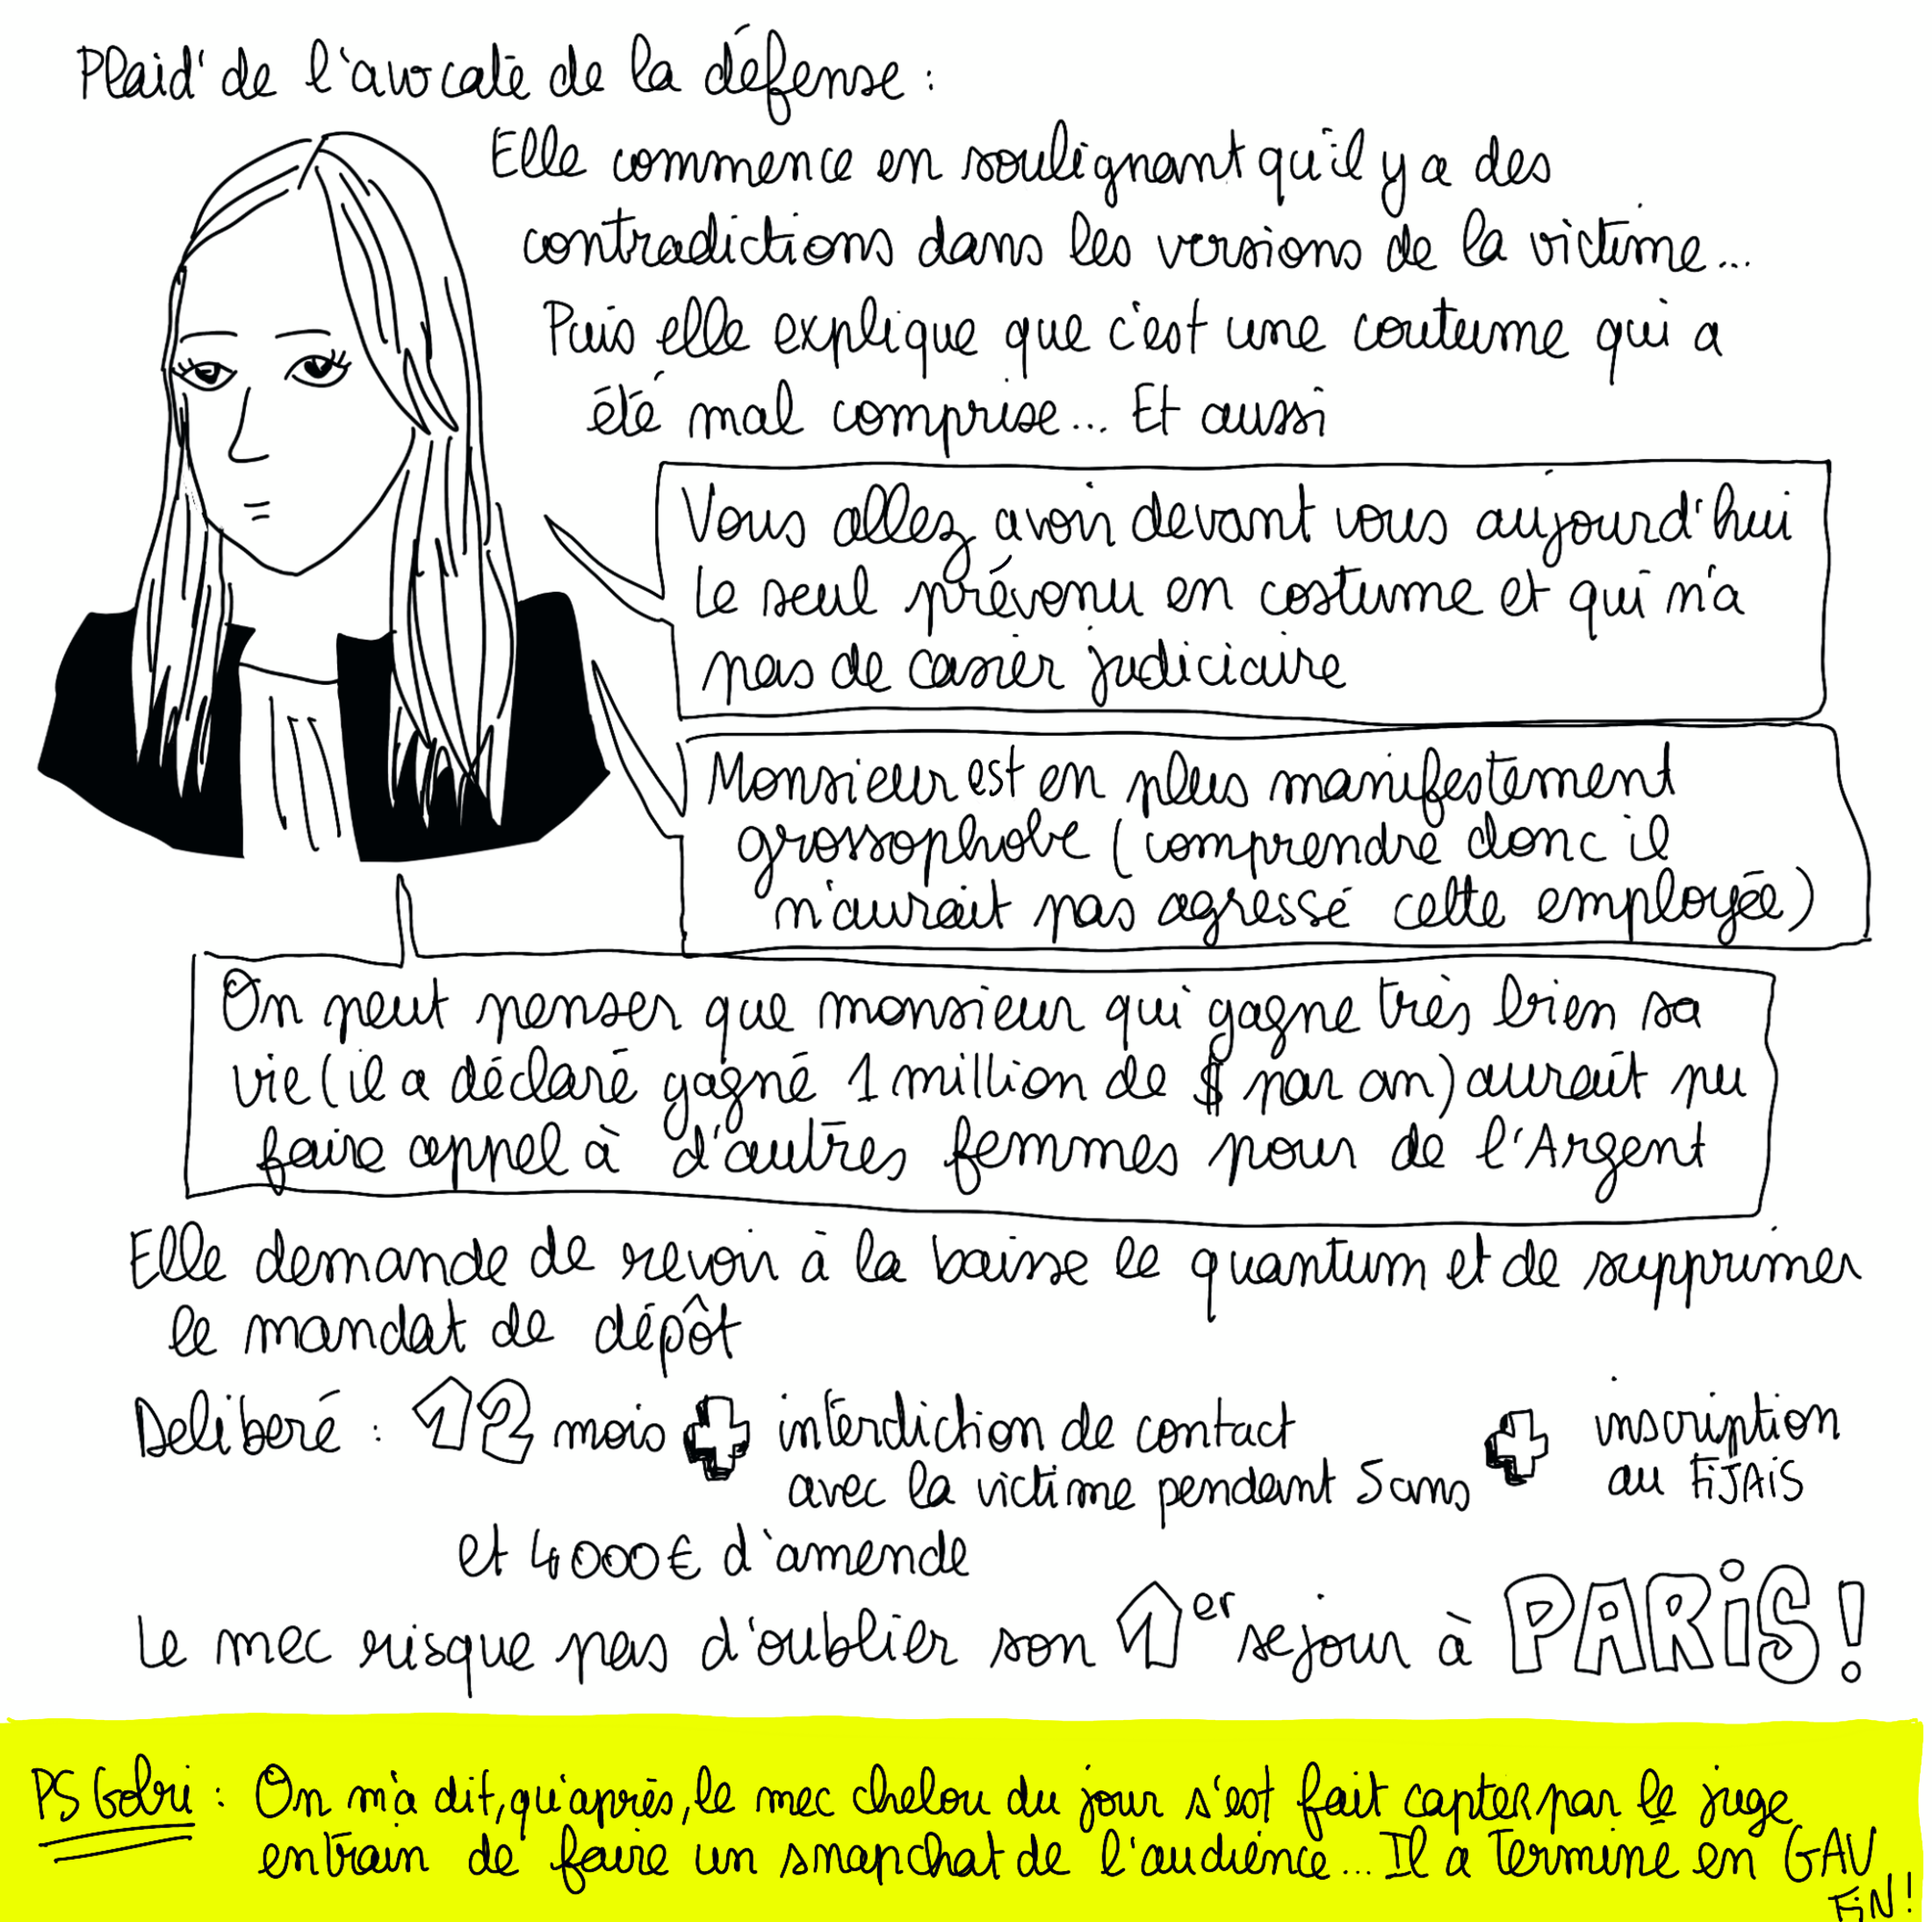 Plaid' de l'avocate de la défense :
Elle commence en soulignant qu'il y a des
contradictions dans les versions de la victime...
Puis elle explique que c'est une coutume qui a
été mal comprise... Et aussi
Vous allez avoir devant vous aujourd'hui
le seul prévenu en costume et qui n'a
pas de casier judiciaire
Monsieur est en plus manifestement
grossophobe (comprendre donc il
n'aurait pas agressé cette employée)
On peut penser que monsieur qui gagne très bien sa
vie (il a déclaré gagné 1 million de $ par an) aurait pu
faire appel à d'autres femmes pour de l'Argent
Elle demande de revoir à la baisse le quantum et de supprimer
le mandat de dépôt
Deliberé : 12 mois + interdiction de contact + inscription
avec la victime pendant 5 ans au FiJAiS
et 4000€ d'amende
Le mec risque pas d'oublier son 1er sejour à PARiS !
PS Gobri : On m'a dit, qu'après, le mec chelou du jour s'est fait capter par le juge
entrain de faire un snapchat de l'audience... Il a terminé en GAV
FiN !